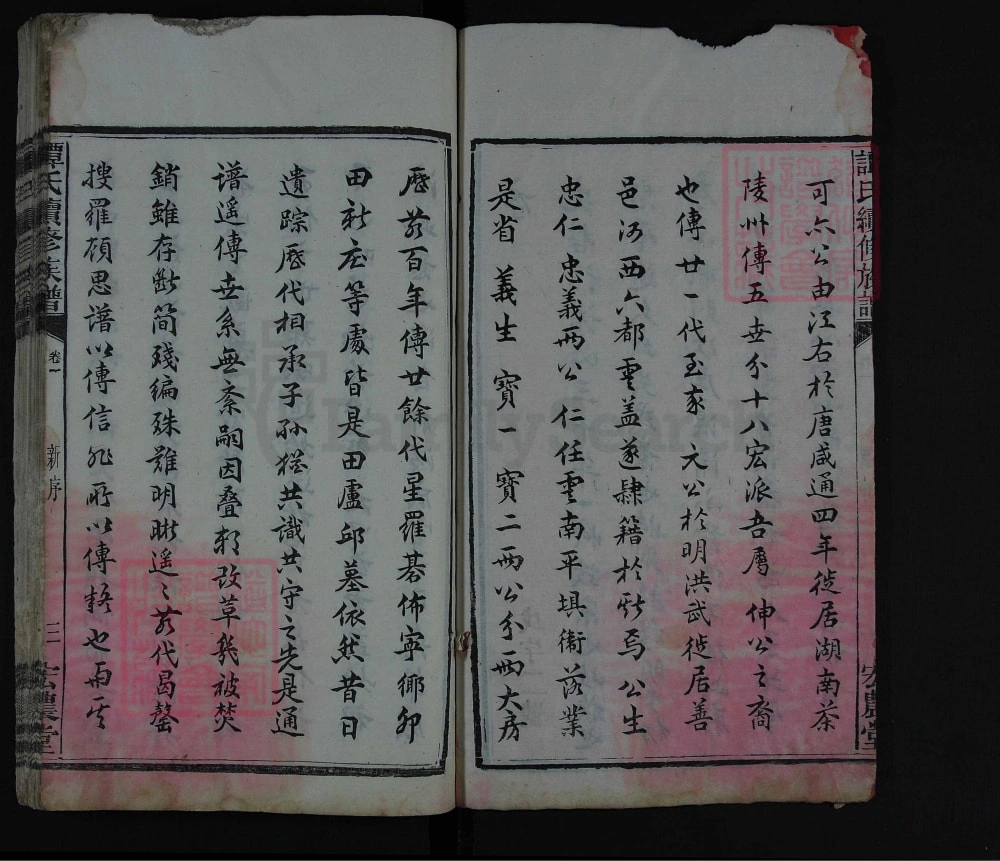 譚氏續修族譜
宏農堂
可六公由江右於唐咸通四年徙居湖南茶
陵州傳五世分十八宏派吾屬 伸公之裔
也傳廿一代至家 元公於明洪武徙居善
邑河西六都雲盖遂肆籍於斯焉 公生
忠仁 忠義兩公 仁任雲南平埧衞落業
是省 義生 寶一 寶二兩公分兩大房
歷茲百年傳廿餘代星羅碁佈寧鄉卯
田新庄等處皆是田廬邱墓依然昔日
遺踪歷代相承子孫猶共識共守之先是通
譜遥傳世系無紊嗣因叠朝改草幾被焚
銷雖存斷简殘編殊難明晰遥遥茲代曷罄
搜羅頋思譜以傳信非所以傳疑也而其
譚氏續修族譜
卷一
新序
三
宏農堂
FamilySearch